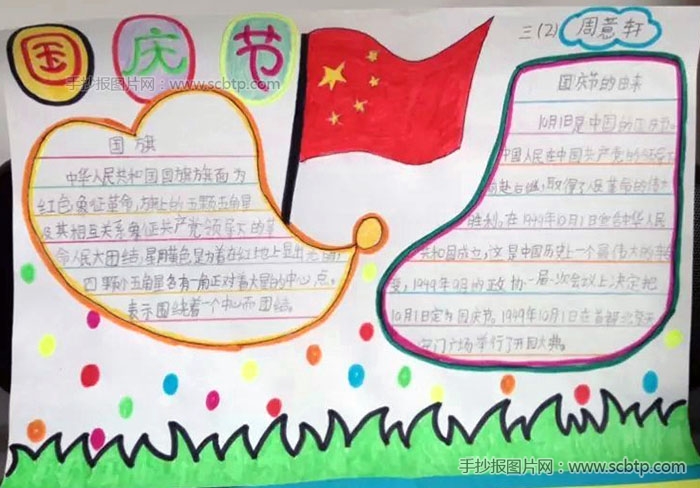 国庆节
手抄报图片网 www.scbtp.com
三(2) 周薏轩
国旗
中华人民共和国国旗旗面为
红色象征革命,旗上的五颗五角星
及其相互关系象征共产党领导下的革
命人民大团结,星用黄色是为着在红地上显出光明,
四颗小五角星各有一角正对着大星的中心点,
表示围绕着一个中心而团结。
国庆节的由来
10月1日是中国的国庆节。
中国人民在中国共产党的领导下
前赴后继,取得了人民革命的伟大
胜利,在1949年10月1日宣告中华人民
共和国成立,这是中国历史上一个最伟大的转
变,1949年9月的政协一届一次会议上决定把
10月1日定为国庆节。1949年10月1日在首都北京天
安门广场举行了开国大典。
手抄报图片网:www.scbtp.com